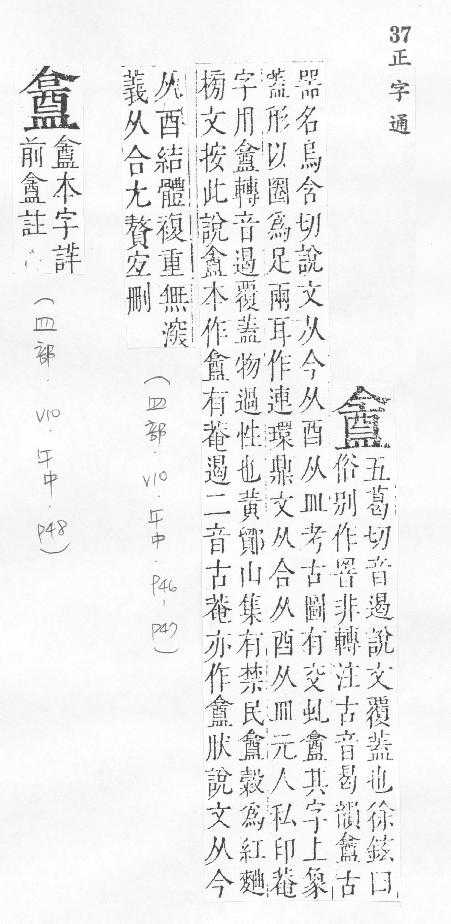 37
正字通
盦
五葛切音遏說文覆蓋也徐鉉曰
俗別作罯非轉注古音曷韻盦古
器名烏含切說文从今从酉从皿考古圖有交虬盦其字上象
蓋形以圈為足兩耳作連環鼎文从合从酉从皿元人私印菴
字用盦轉音遏覆蓋物遏性也黃鄮山集有禁民盦穀為紅麯
榜文按此說盦本作盦有菴遏二音古菴亦作盦肰說文从今
从酉結體複重無深
義从合尤贅宜刪
(四部.V10.午中.P46-P47)
盦
盦本字詳
前盦註
(四部.V10.午中.P48)